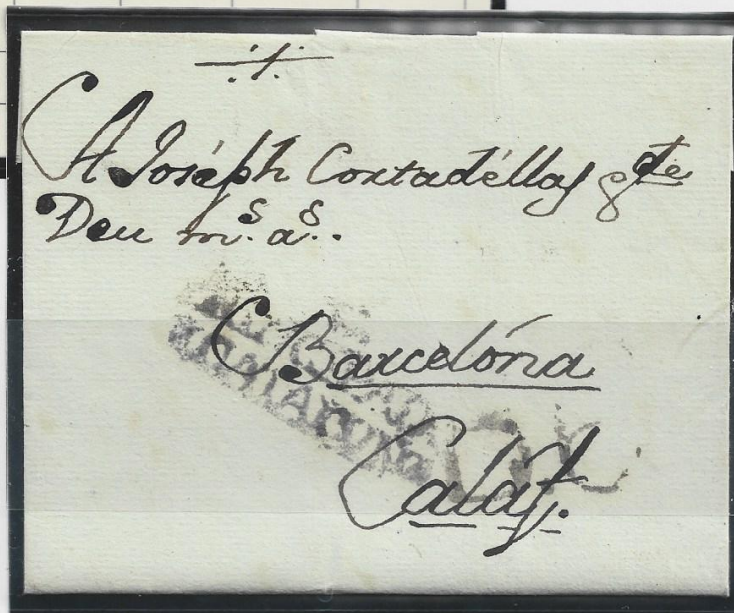 A Joséph Cortadéllas gde
Deu ms. as.
Barcelóna
Calaf.